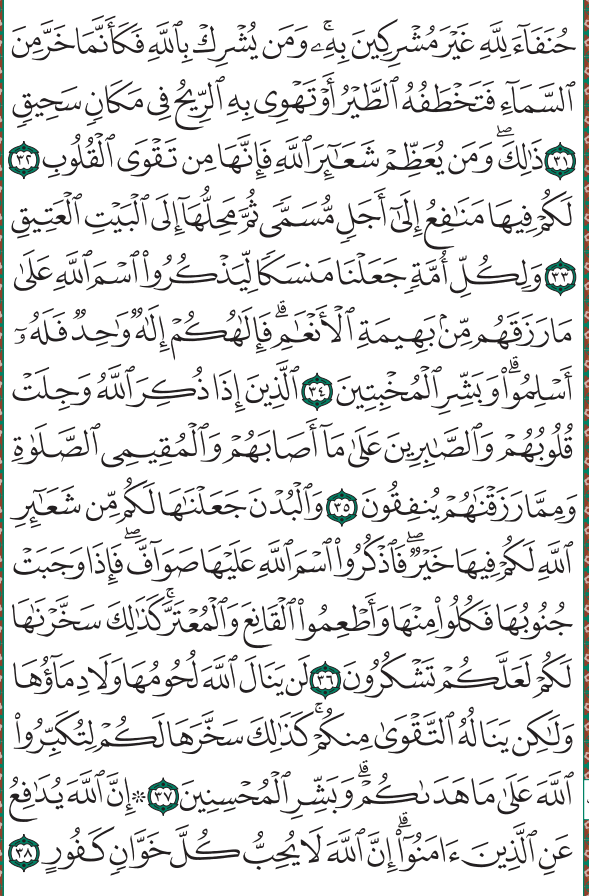 حُنَفَآءَ لِلَّهِ غَيْرَ مُشْرِكِينَ بِهِۦۚ وَمَن يُشْرِكْ بِٱللَّهِ فَكَأَنَّمَا خَرَّ مِنَ
ٱلسَّمَآءِ فَتَخْطَفُهُ ٱلطَّيْرُ أَوْ تَهْوِى بِهِ ٱلرِّيحُ فِى مَكَانٍ سَحِيقٍ
٣١ ذَٰلِكَۖ وَمَن يُعَظِّمْ شَعَٰٓئِرَ ٱللَّهِ فَإِنَّهَا مِن تَقْوَى ٱلْقُلُوبِ ٣٢
لَكُمْ فِيهَا مَنَٰفِعُ إِلَىٰٓ أَجَلٍ مُّسَمًّى ثُمَّ مَحِلُّهَآ إِلَى ٱلْبَيْتِ ٱلْعَتِيقِ
٣٣ وَلِكُلِّ أُمَّةٍ جَعَلْنَا مَنسَكًا لِّيَذْكُرُوا۟ ٱسْمَ ٱللَّهِ عَلَىٰ
مَا رَزَقَهُم مِّنۢ بَهِيمَةِ ٱلْأَنْعَٰمِۗ فَإِلَٰهُكُمْ إِلَٰهٌ وَٰحِدٌ فَلَهُۥٓ
أَسْلِمُوا۟ۗ وَبَشِّرِ ٱلْمُخْبِتِينَ ٣٤ ٱلَّذِينَ إِذَا ذُكِرَ ٱللَّهُ وَجِلَتْ
قُلُوبُهُمْ وَٱلصَّٰبِرِينَ عَلَىٰ مَآ أَصَابَهُمْ وَٱلْمُقِيمِى ٱلصَّلَوٰةِ
وَمِمَّا رَزَقْنَٰهُمْ يُنفِقُونَ ٣٥ وَٱلْبُدْنَ جَعَلْنَٰهَا لَكُم مِّن شَعَٰٓئِرِ
ٱللَّهِ لَكُمْ فِيهَا خَيْرٌۖ فَٱذْكُرُوا۟ ٱسْمَ ٱللَّهِ عَلَيْهَا صَوَآفَّۖ فَإِذَا وَجَبَتْ
جُنُوبُهَا فَكُلُوا۟ مِنْهَا وَأَطْعِمُوا۟ ٱلْقَانِعَ وَٱلْمُعْتَرَّۚ كَذَٰلِكَ سَخَّرْنَٰهَا
لَكُمْ لَعَلَّكُمْ تَشْكُرُونَ ٣٦ لَن يَنَالَ ٱللَّهَ لُحُومُهَا وَلَا دِمَآؤُهَا
وَلَٰكِن يَنَالُهُ ٱلتَّقْوَىٰ مِنكُمْۚ كَذَٰلِكَ سَخَّرَهَا لَكُمْ لِتُكَبِّرُوا۟
ٱللَّهَ عَلَىٰ مَا هَدَىٰكُمْۗ وَبَشِّرِ ٱلْمُحْسِنِينَ ٣٧ ۞ إِنَّ ٱللَّهَ يُدَٰفِعُ
عَنِ ٱلَّذِينَ ءَامَنُوٓا۟ۗ إِنَّ ٱللَّهَ لَا يُحِبُّ كُلَّ خَوَّانٍ كَفُورٍ ٣٨